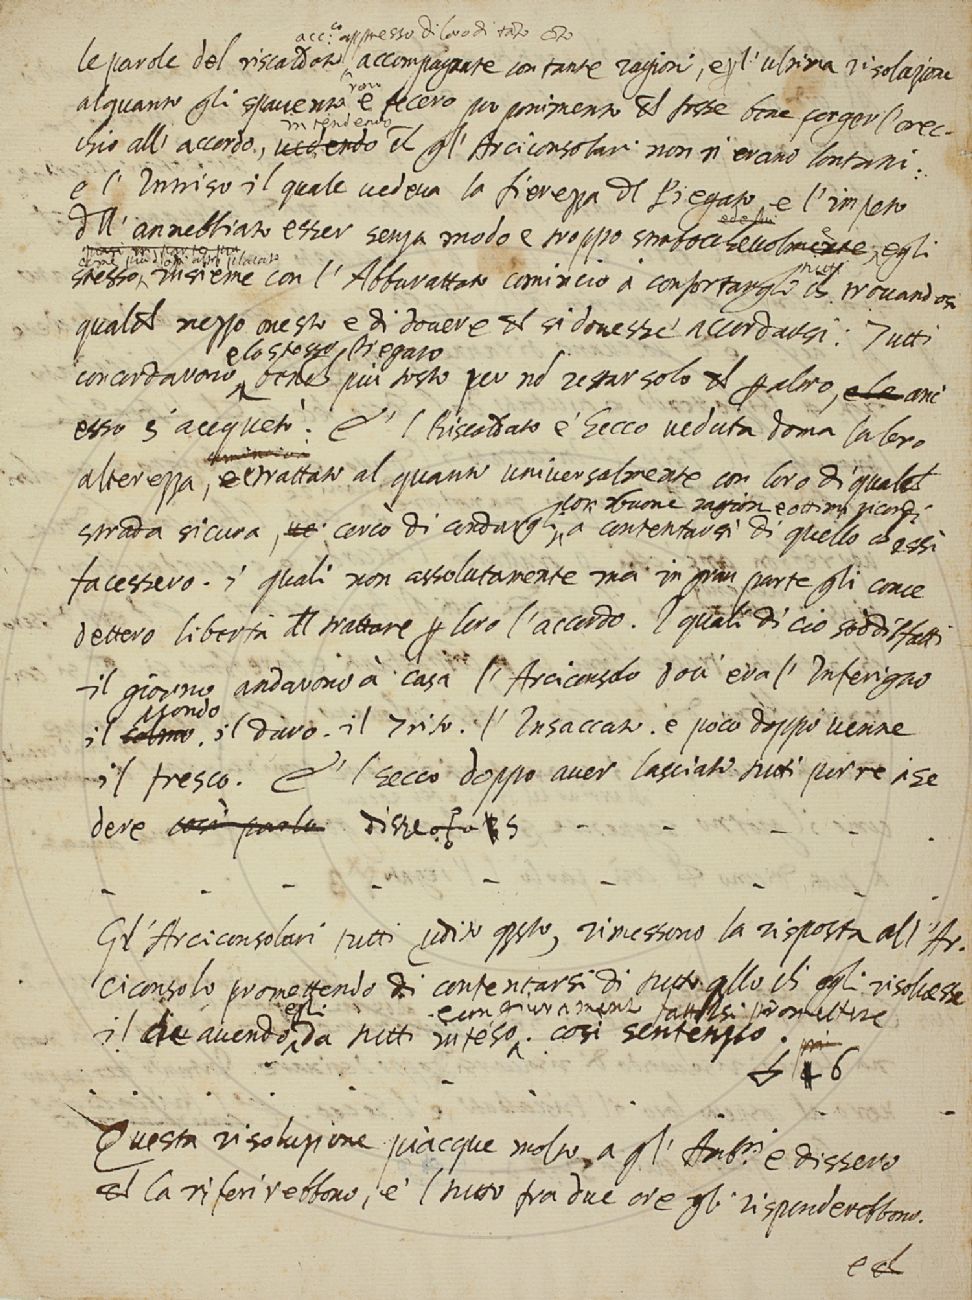 le parole del riscaldato accompagnate con tante ragioni, e l'ultima risolazione
alquanto gli spavento non e fecero fosse bene porger l'orec-
chio all'accordo, uedendo intendendo gl'Arciconsolari non n'erano lontani:
e l'Intriso il quale uedeua la fierezza Piegato, e l'impeto
dell'annebbiato esser senza modo e troppo egli
stesso, insieme con l'Abburattato cominciò à confortargli trouandosi
qualche mezzo onesto e di douere si douesse accordarsi. Tutti
concordavono e lo stesso Piegato più tosto per restar solo altro, e le anc
esso s'acquetò. E 'l Riscaldato e 'l Secco veduta doma la loro
alterezza, e trattato alquanto universalmente con loro di qualche
strada sicura, cercò di condurgli con buone ragioni e ottimi ricordi a contentarsi di quello essi
facessero. i quali non assolutamente ma in gran parte gli conce
dettero libertà trattare loro l'accordo. I quali di ciò soddisfatti
il giorno andavono à casa l'Arciconsolo dou'era l'Inferigno
il il duro. il Trito. l'Insaccato. e poco doppo uenne
il fresco. E 'l Secco doppo auer lasciati tutti porre à se
dere così parlò disse 5
Gl'Arciconsolari tutti udito questo, rimessono la risposta all'Ar-
ciconsolo promettendo di contentarsi di tutto quello egli risoluesse
il che auendo egli da tutti inteso e con giuramento fattosi promettere. così sentenziò.
6
Questa risoluzione piacque molto a gl' e dissero
la riferirebbono, e 'l tutto fra due ore gli risponderebbono.